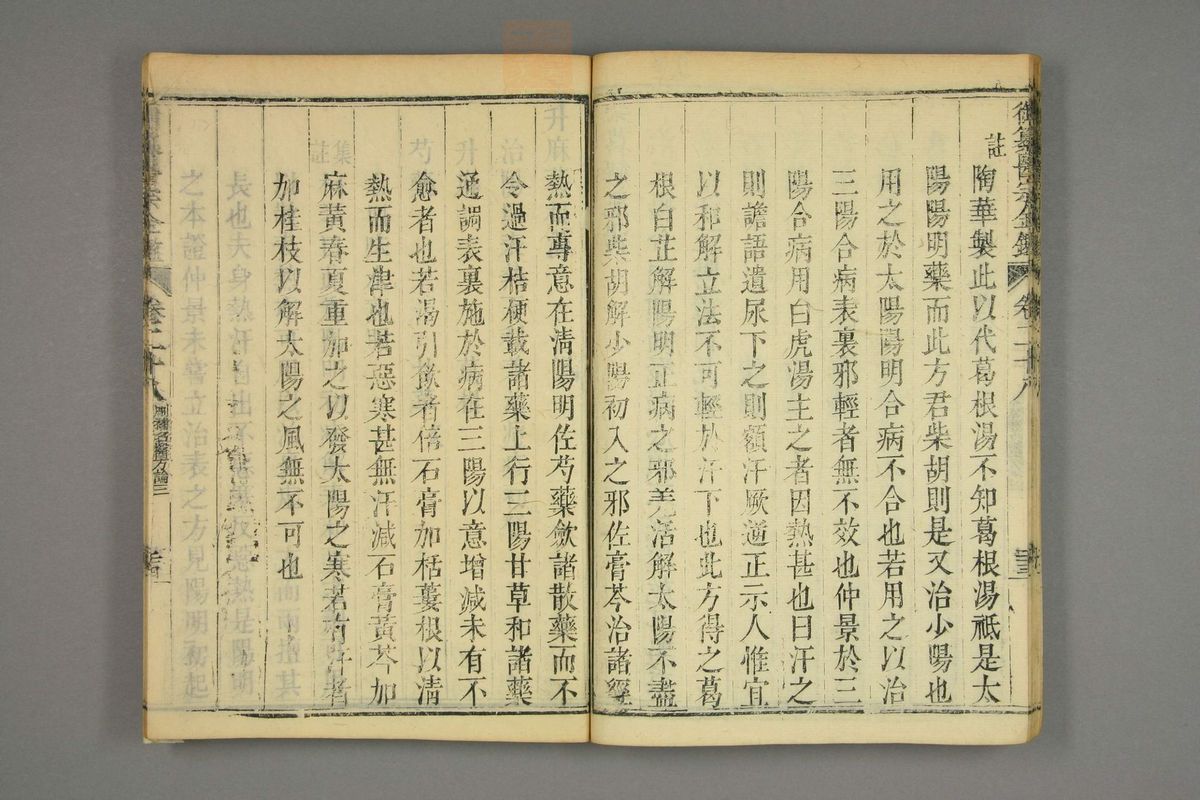 御纂醫宗金鑑 卷二十八
註
陶華製此以代葛根湯不知葛根湯祗是太
陽陽明藥而此方君柴胡則是又治少陽也
用之於太陽陽明合病不合也若用之以治
三陽合病表裏邪輕者無不效也仲景於三
陽合病用白虎湯主之者因熱甚也曰汗之
則譫語遺尿下之則額汗厥逆正示人惟宜
以和解立法不可輕於汗下也此方得之葛
根白芷解陽明正病之邪羌活解太陽不盡
之邪柴胡解少陽初入之邪佐膏芩治諸經
熱而專意在清陽明佐芍藥斂諸散藥而不
令過汗桔梗載諸藥上行三陽甘草和諸藥
通調表裏施於病在三陽以意增減未有不
愈者也若渴引飲者倍石膏加栝蔞根以清
熱而生津也若惡寒甚無汗減石膏黃芩加
麻黃春夏重加之以發太陽之寒若有汗者
加桂枝以解太陽之風無不可也
卷二十八 刪補名醫方論三